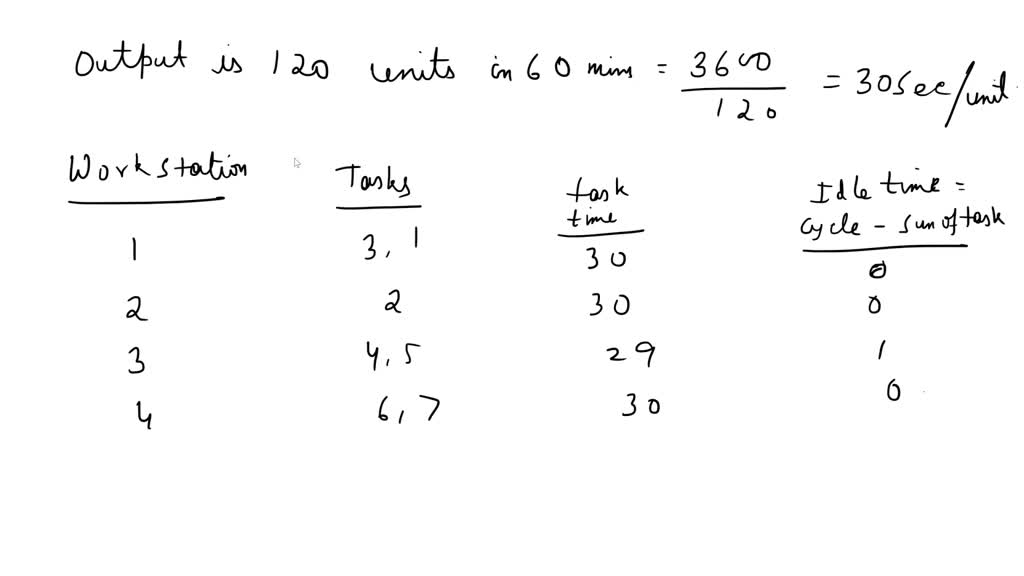 Output is 120 units in 60 mins = 3600 / 120 = 30 sec/unit
Workstation Tasks task time Idle time = cycle - sum of task
1 3, 1 30 0
2 2 30 0
3 4, 5 29 1
4 6, 7 30 0